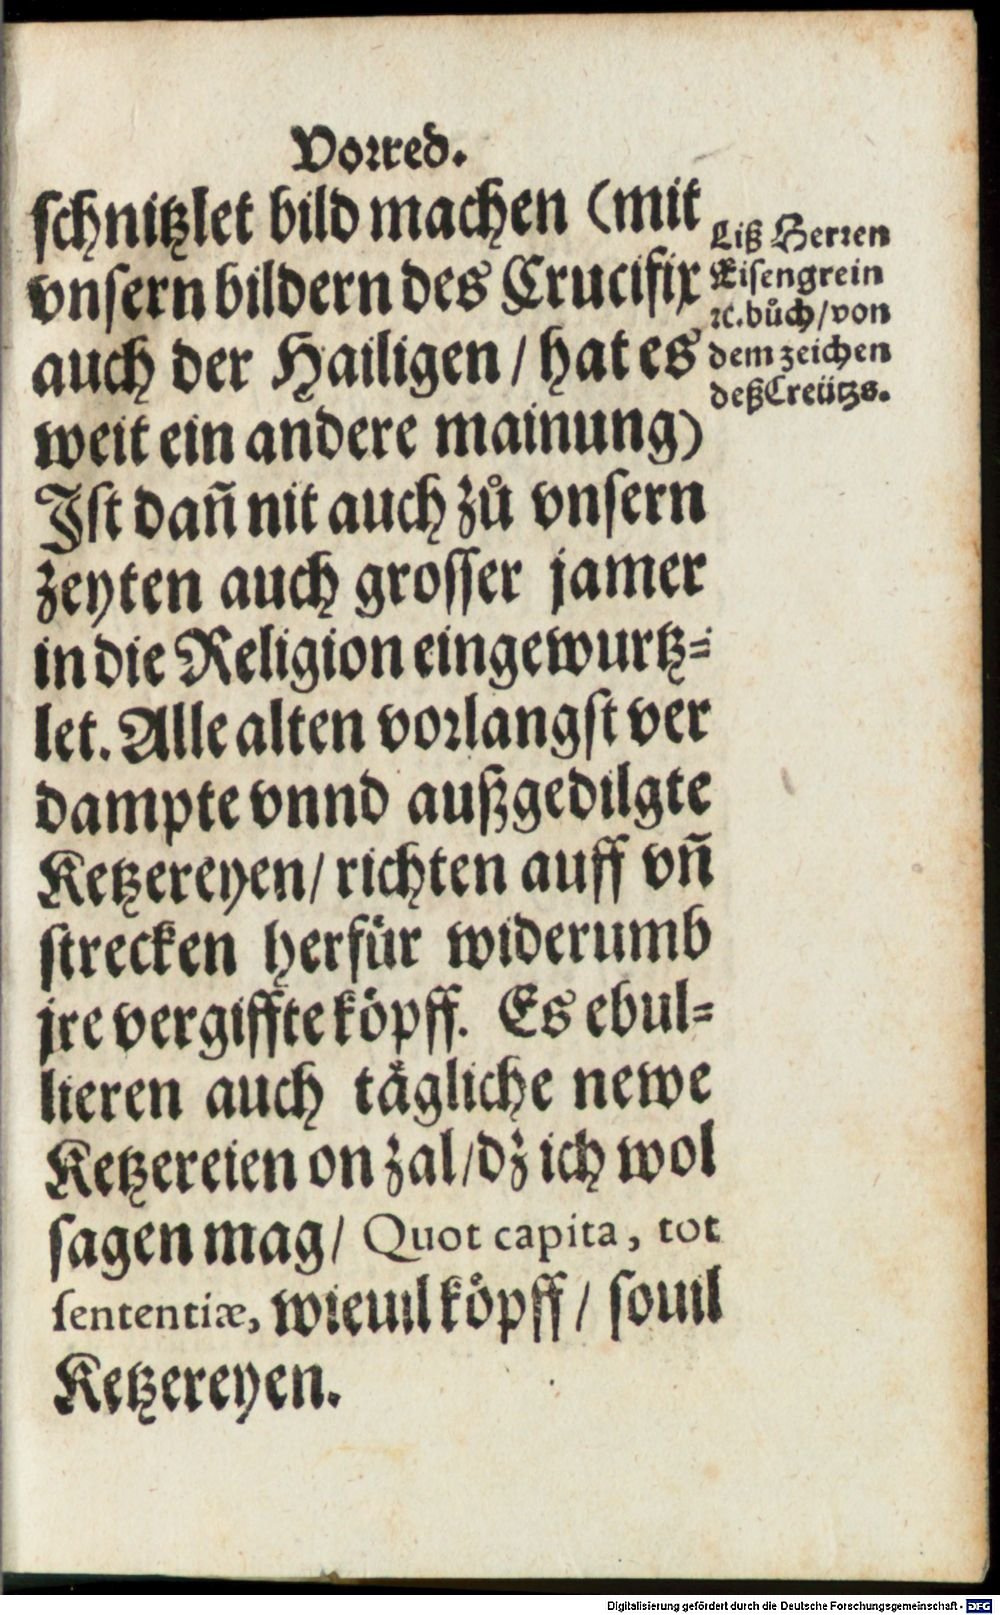 Vorred.
schnitzlet bild machen (mit
vnsern bildern des Crucifix
auch der Hailigen / hat es
weit ein andere mainung)
Ist dañ nit auch zů vnsern
zeyten auch grosser jamer
in die Religion eingewurtz-
let. Alle alten vorlangst ver
dampte vnnd außgedilgte
Ketzereyen / richten auff vñ
strecken herfür widerumb
jre vergiffte köpff. Es ebul-
lieren auch tägliche newe
Ketzereien on zal / dz ich wol
sagen mag / Quot capita, tot
sententiæ, wieuil köpff / souil
Ketzereyen.
Liß Herren
Eisengrein
ꝛc. bůch / von
dem zeichen
deß Creützs.
Digitalisierung gefördert durch die Deutsche Forschungsgemeinschaft - DFG